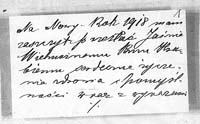 Na Nowy Rok 1918 mam
zaszczyt przesłać Jaśnie
Wielmożnemu Panu Hra-
biemu serdeczne życze-
nia zdrowia i pomyśl-
ności wraz z wyrazami